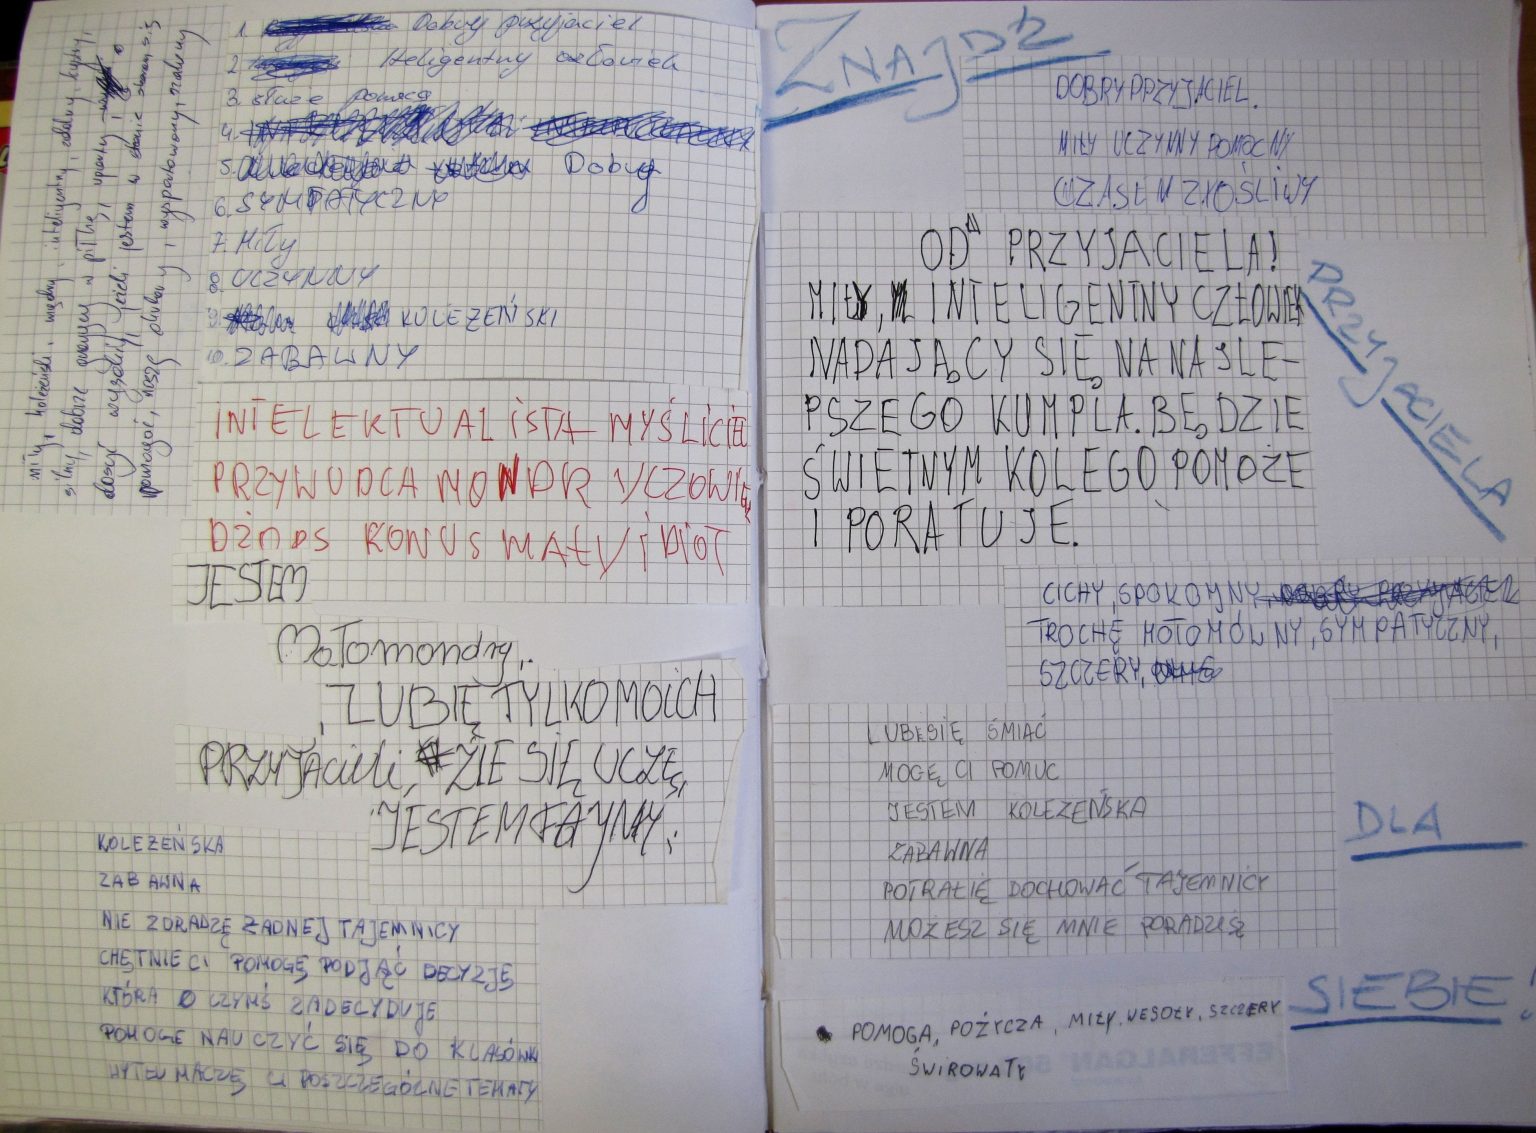 miły, koleżeński, mądry, inteligentny, dobry, fajny,
silny, dobrze grający w piłkę, uparty i
dosyć wysoki, jeżeli jestem w stanie staram się
pomagać, noszę okulary, wysportowany, zabawny
1. Dobry przyjaciel
2. Iteligentny człowiek
3. służe pomocą
4.
5. Dobry
6. SYMPATYCZNY
7. Miły
8. UCZYNNY
9. KOLEZEŃSKI
10. ZABAWNY
INTELEKTUALISTA MYŚLICIEL
PRZYWUDCA MONDR Y CZOWIEK
KONUS MAŁY IDIOT
JESTEM
Małomondry,
LUBIĘ TYLKO MOICH
PRZYJACIELI, ZIE SIĘ UCZĘ,
JESTEM FAJNY,
KOLEZEŃSKA
ZABAWNA
NIE ZDRADZĘ ŻADNEJ TAJEMNICY
CHĘTNIE CI POMOGĘ PODJĄĆ DECYZJĘ
KTÓRA O CZYMŚ ZADECYDUJE
POMOGE NAUCZYĆ SIĘ DO KLASÓWKI
WYTŁUMACZĘ CI POSZCZEGÓLNE TEMATY
ZNAJDŹ
DOBRY PRZYJACIEL.
MIŁY UCZYNNY POMOCNY
CZASEM ZŁOŚLIWY
OD PRZYJACIELA!
MIŁY, INTELIGENTNY CZŁOWIEK
NADAJĄCY SIĘ NA NAJLE-
PSZEGO KUMPLA. BĘDZIE
ŚWIETNYM KOLEGO POMOŻE
I PORATUJE.
PRZYJACIELA
CICHY, SPOKOJNY,
TROCHĘ MOTOMÓWNY, SYMPATYCZNY,
SZCZERY,
LUBIĘ SIĘ ŚMIAĆ
MOGĘ CI POMUC
JESTEM KOLEZEŃSKA
ZABAWNA
POTRAFIĘ DOCHOWAĆ TAJEMNICY
MOŻESZ SIĘ MNIE PORADZIĘ
DLA
POMOGA, POŻYCZA, MIŁY, WESOŁY, SZCZERY
ŚWIROWATY
SIEBIE!